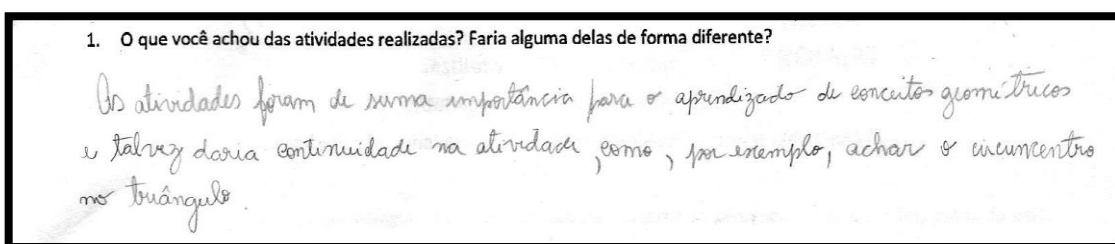 1. O que você achou das atividades realizadas? Faria alguma delas de forma diferente?
As atividades foram de suma importância para o aprendizado de conceitos geométricos
e talvez daria continuidade na atividade, como, por exemplo, achar o circuncentro
no triângulo.